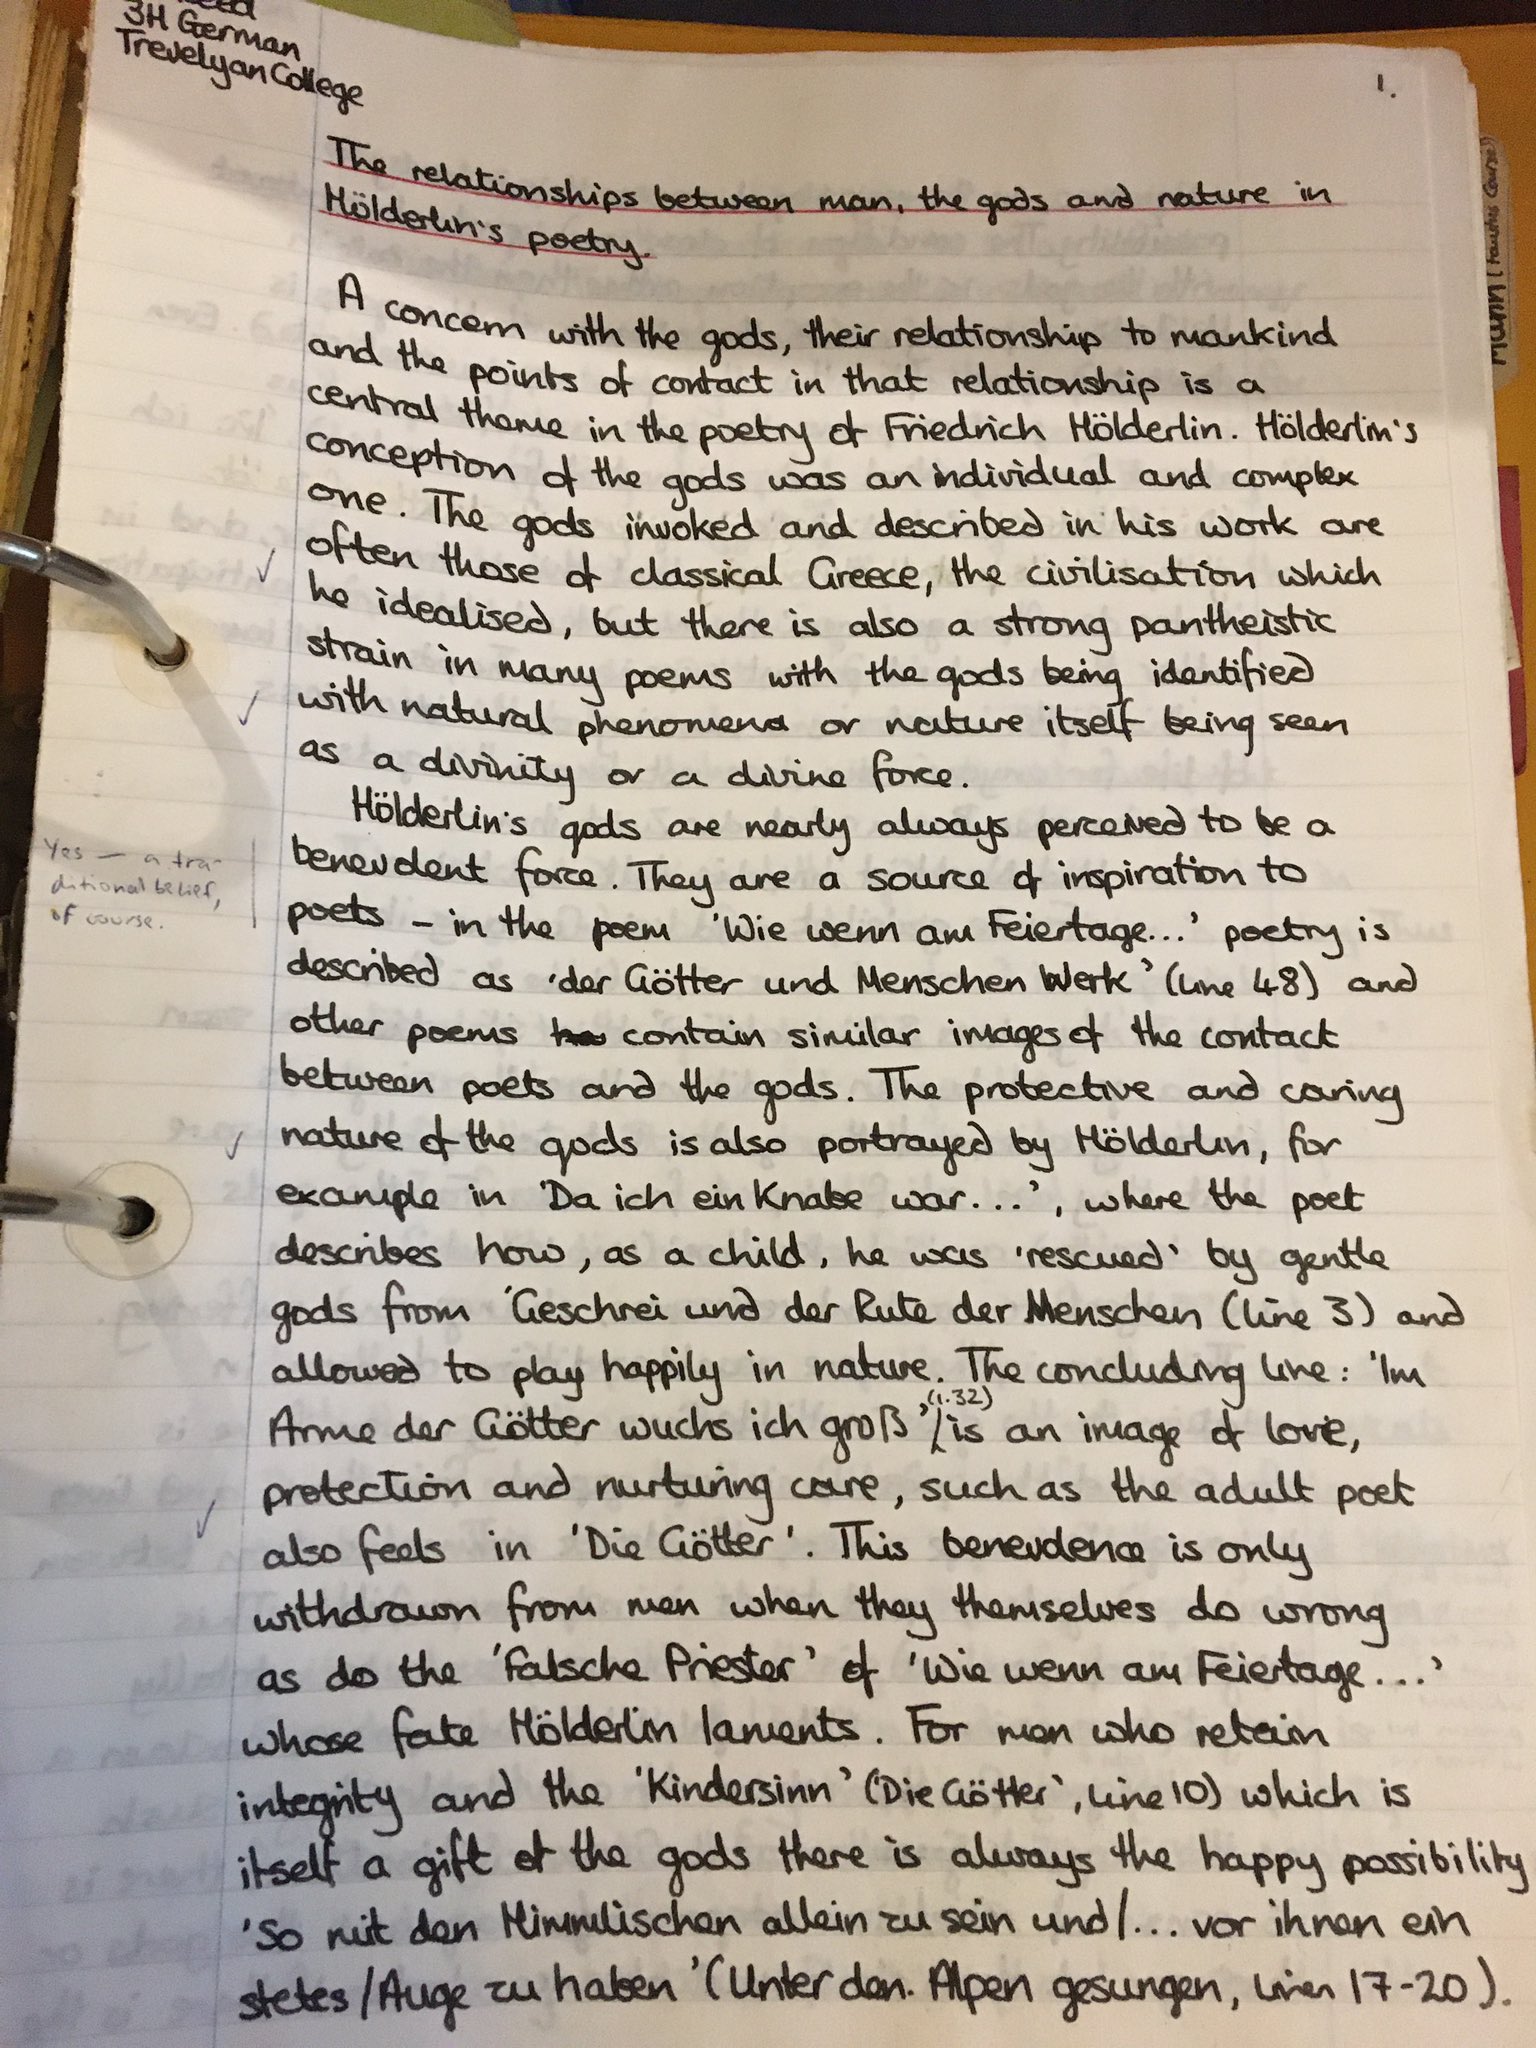 3H German
Trevelyan College
1.
The relationships between man, the gods and nature in
Hölderlin's poetry.
A concern with the gods, their relationship to mankind
and the points of contact in that relationship is a
central theme in the poetry of Friedrich Hölderlin. Hölderlin's
conception of the gods was an individual and complex
one. The gods invoked and described in his work are
often those of classical Greece, the civilisation which
he idealised, but there is also a strong pantheistic
strain in many poems with the gods being identified
with natural phenomena or nature itself being seen
as a divinity or a divine force.
Hölderlin's gods are nearly always perceived to be a
benevolent force. They are a source of inspiration to
poets – in the poem 'Wie wenn am Feiertage...' poetry is
described as 'der Götter und Menschen Werk' (line 48) and
other poems contain similar images of the contact
between poets and the gods. The protective and caring
nature of the gods is also portrayed by Hölderlin, for
example in 'Da ich ein Knabe war...', where the poet
describes how, as a child, he was 'rescued' by gentle
gods from 'Geschrei und der Rute der Menschen (line 3) and
allowed to play happily in nature. The concluding line: 'Im
Arme der Götter wuchs ich groß' (l.32) is an image of love,
protection and nurturing care, such as the adult poet
also feels in 'Die Götter'. This benevolence is only
withdrawn from men when they themselves do wrong
as do the 'falsche Priester' of 'Wie wenn am Feiertage...'
whose fate Hölderlin laments. For men who retain
integrity and the 'Kindersinn' ('Die Götter', line 10) which is
itself a gift of the gods there is always the happy possibility
'So mit den Himmlischen allein zu sein und/... vor ihnen ein
stetes/Auge zu haben' (Unter den Alpen gesungen, lines 17-20).
Yes – a tra-
ditional belief,
of course.